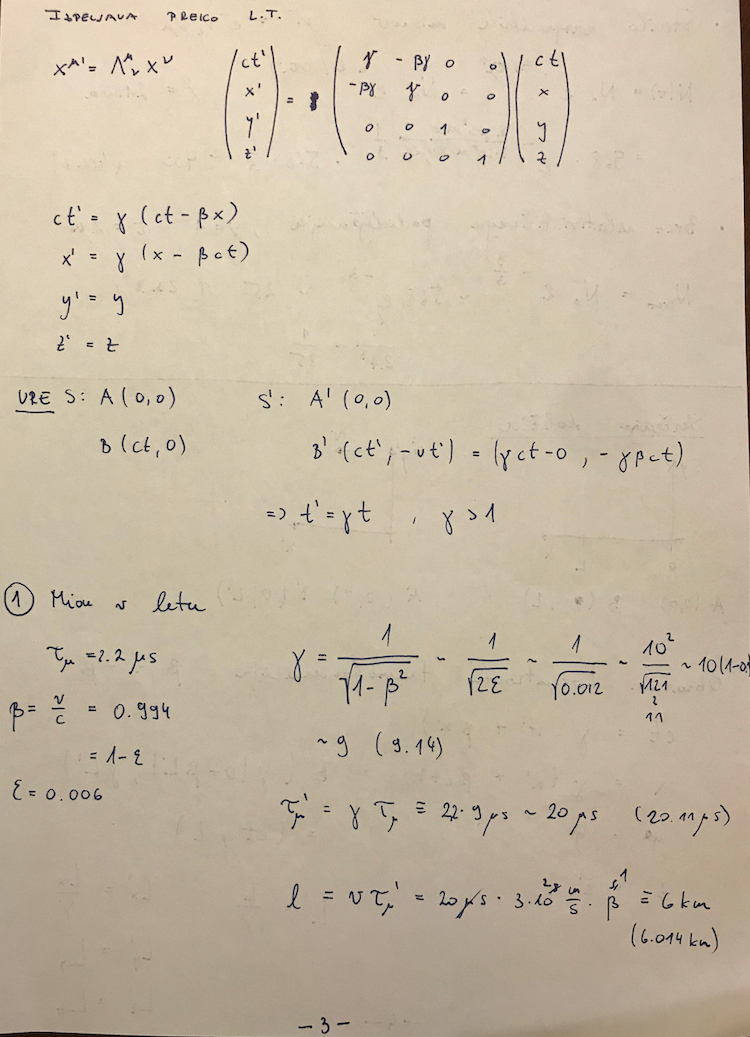 IZPELJAVA PREKO L.T.
x^μ' = Λ^μ_ν x^ν
(ct' x' y' z') = (γ -βγ 0 0
-βγ γ 0 0
0 0 1 0
0 0 0 1) (ct x y z)
ct' = γ (ct - βx)
x' = γ (x - βct)
y' = y
z' = z
URE S: A(0,0) S': A'(0,0)
B(ct,0) B'(ct', -vt') = (γct-0, -γβct)
=> t' = γt , γ > 1
① Mion v letu
τ_μ = 2.2 μs
γ = 1/√(1-β²) ~ 1/√(2ε) ~ 1/√0.012 ~ 10²/√121 ~ 10(1-0.
11
β = v/c = 0.994
~ 9 (9.14)
= 1-ε
ε = 0.006
τ_μ' = γ τ_μ ≡ 2.2·9 μs ~ 20 μs (20.11 μs)
l = v τ_μ' = 20 μs · 3·10^8 m/s · β ≡ 6 km
(6.014 km)
-3-